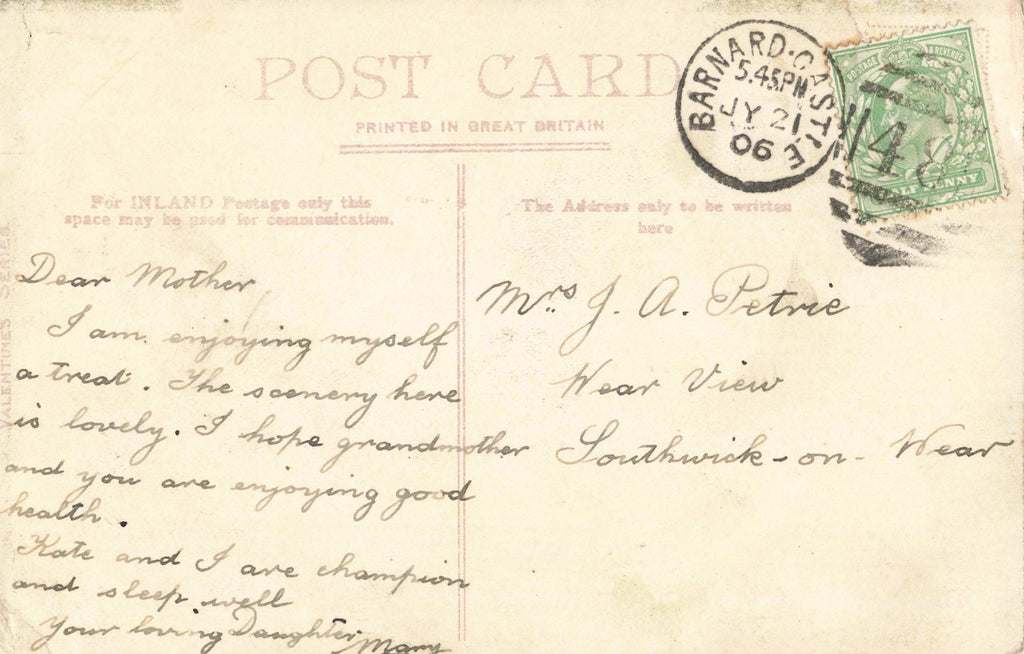 POST CARD
PRINTED IN GREAT BRITAIN
BARNARD·CASTLE
5.45PM
JY 21
06
POSTAGE & REVENUE
HALF PENNY
48
For INLAND Postage only this
space may be used for communication.
The Address only to be written
here
VALENTINES SERIES
Dear Mother
I am enjoying myself
a treat. The scenery here
is lovely. I hope grandmother
and you are enjoying good
health.
Kate and I are champion
and sleep well
Your loving Daughter Mary
Mrs J. A. Petrie
Wear View
Southwick-on-Wear